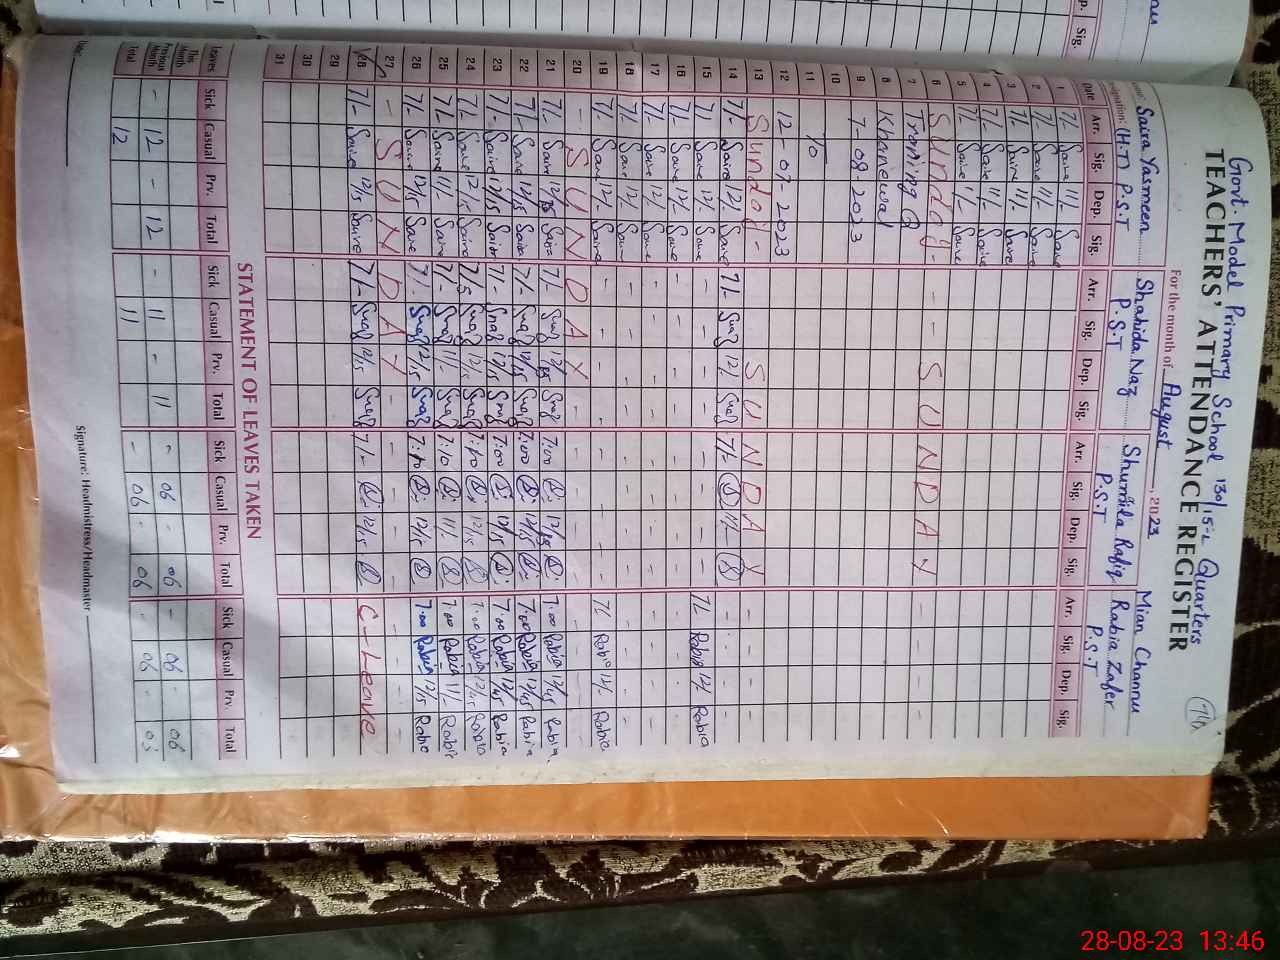 Govt. Model Primary School 130/15-L Quarters Mian Channu
TEACHERS' ATTENDANCE REGISTER
For the month of August, 2023
Saira Yasmeen Shahida Naz Shumila Rafiq Rabia Zafer
(H.T) P.S.T P.S.T P.S.T P.S.T
Date Arr. Sig. Dep. Sig. Arr. Sig. Dep. Sig. Arr. Sig. Dep. Sig. Arr. Sig. Dep. Sig.
1 7/- Saire 11/- Saire
2 7/- Saire 11/- Saire
3 7/- Saire 11/- Saire
4 7/- Saire 11/- Saire
5 7/- Saire 11/- Saire
6 Sunday - - - SUNDAY - - - -
7 Traning @
8 Khanewal
9 7-08-2023
10
11 To
12 12-08-2023
13 Sunday - SUNDAY - - - -
14 7/- Saire 12/- Saire 7/- Snaz 12/- Snaz 7/- 11/-
15 7/- Saire 12/- Saire - - - - - - - - 7/- Rabia 12/- Rabia
16 7/- Saire 12/- Saire - - - - - - - - - - - -
17 7/- Saire 12/- Saire - - - - - - - - - - - -
18 7/- Saire 12/- Saire - - - - - - - - - - - -
19 7/- Saire 12/- Saire - - - - - - - - 7/- Rabia 12/- Rabia
20 - SUNDAY - - - - - - - -
21 7/- Saire 12/15 Saire 7/- Snaz 12/15 Snaz 7:00 12/15 7:00 Rabia 12/15 Rabia
22 7/- Saire 12/15 Saire 7/- Snaz 12/15 Snaz 7:00 12/15 7:00 Rabia 12/15 Rabia
23 7/- Saire 12/15 Saire 7/- Snaz 12/15 Snaz 7:00 12/15 7:00 Rabia 12/15 Rabia
24 7/- Saire 12/15 Saire 7/5 Snaz 12/15 Snaz 7:10 12/15 7:00 Rabia 12/15 Rabia
25 7/- Saire 11/- Saire 7/- Snaz 11/- Snaz 7:10 11/- 7:00 Rabia 11/- Rabia
26 7/- Saire 12/15 Saire 7/- Snaz 12/15 Snaz 7:10 12/15 7:00 Rabia 12/15 Rabia
27 - SUNDAY - - - - - - - - -
28 7/- Saire 12/15 Saire 7/- Snaz 12/15 Snaz 7/- 12/15 C-Leave
29
30
31
STATEMENT OF LEAVES TAKEN
Leaves Sick Casual Prv. Total Sick Casual Prv. Total Sick Casual Prv. Total Sick Casual Prv Total
This Month
Previous Month - 12 - 12 - 11 - 11 - 06 - 06 - 06 - 06
Total 12 11 - 06 - 06 - 06 -
Signature: Headmistress/Headmaster
28-08-23 13:46